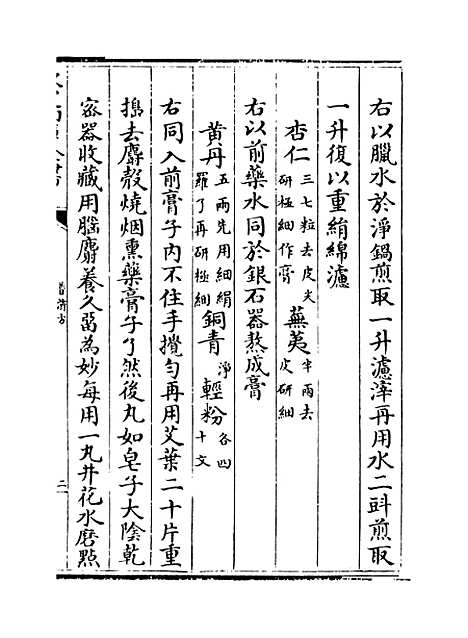 右以臘水於淨鍋煎取一升濾滓再用水二㪷煎取
一升復以重絹綿濾
杏仁三七粒去皮尖研極細作膏 蕪荑半兩去皮研細
右以前藥水同於銀石器熬成膏
黄丹五兩先用細絹羅了再研極細 銅青淨 輕粉各四十文
右同入前膏子内不住手攪勻再用艾葉二十片重
搗去麝殻燒烟熏藥膏子了然後丸如皂子大陰乾
宻器收藏用腦麝養久留為妙每用一丸井花水磨點
普濟方
二